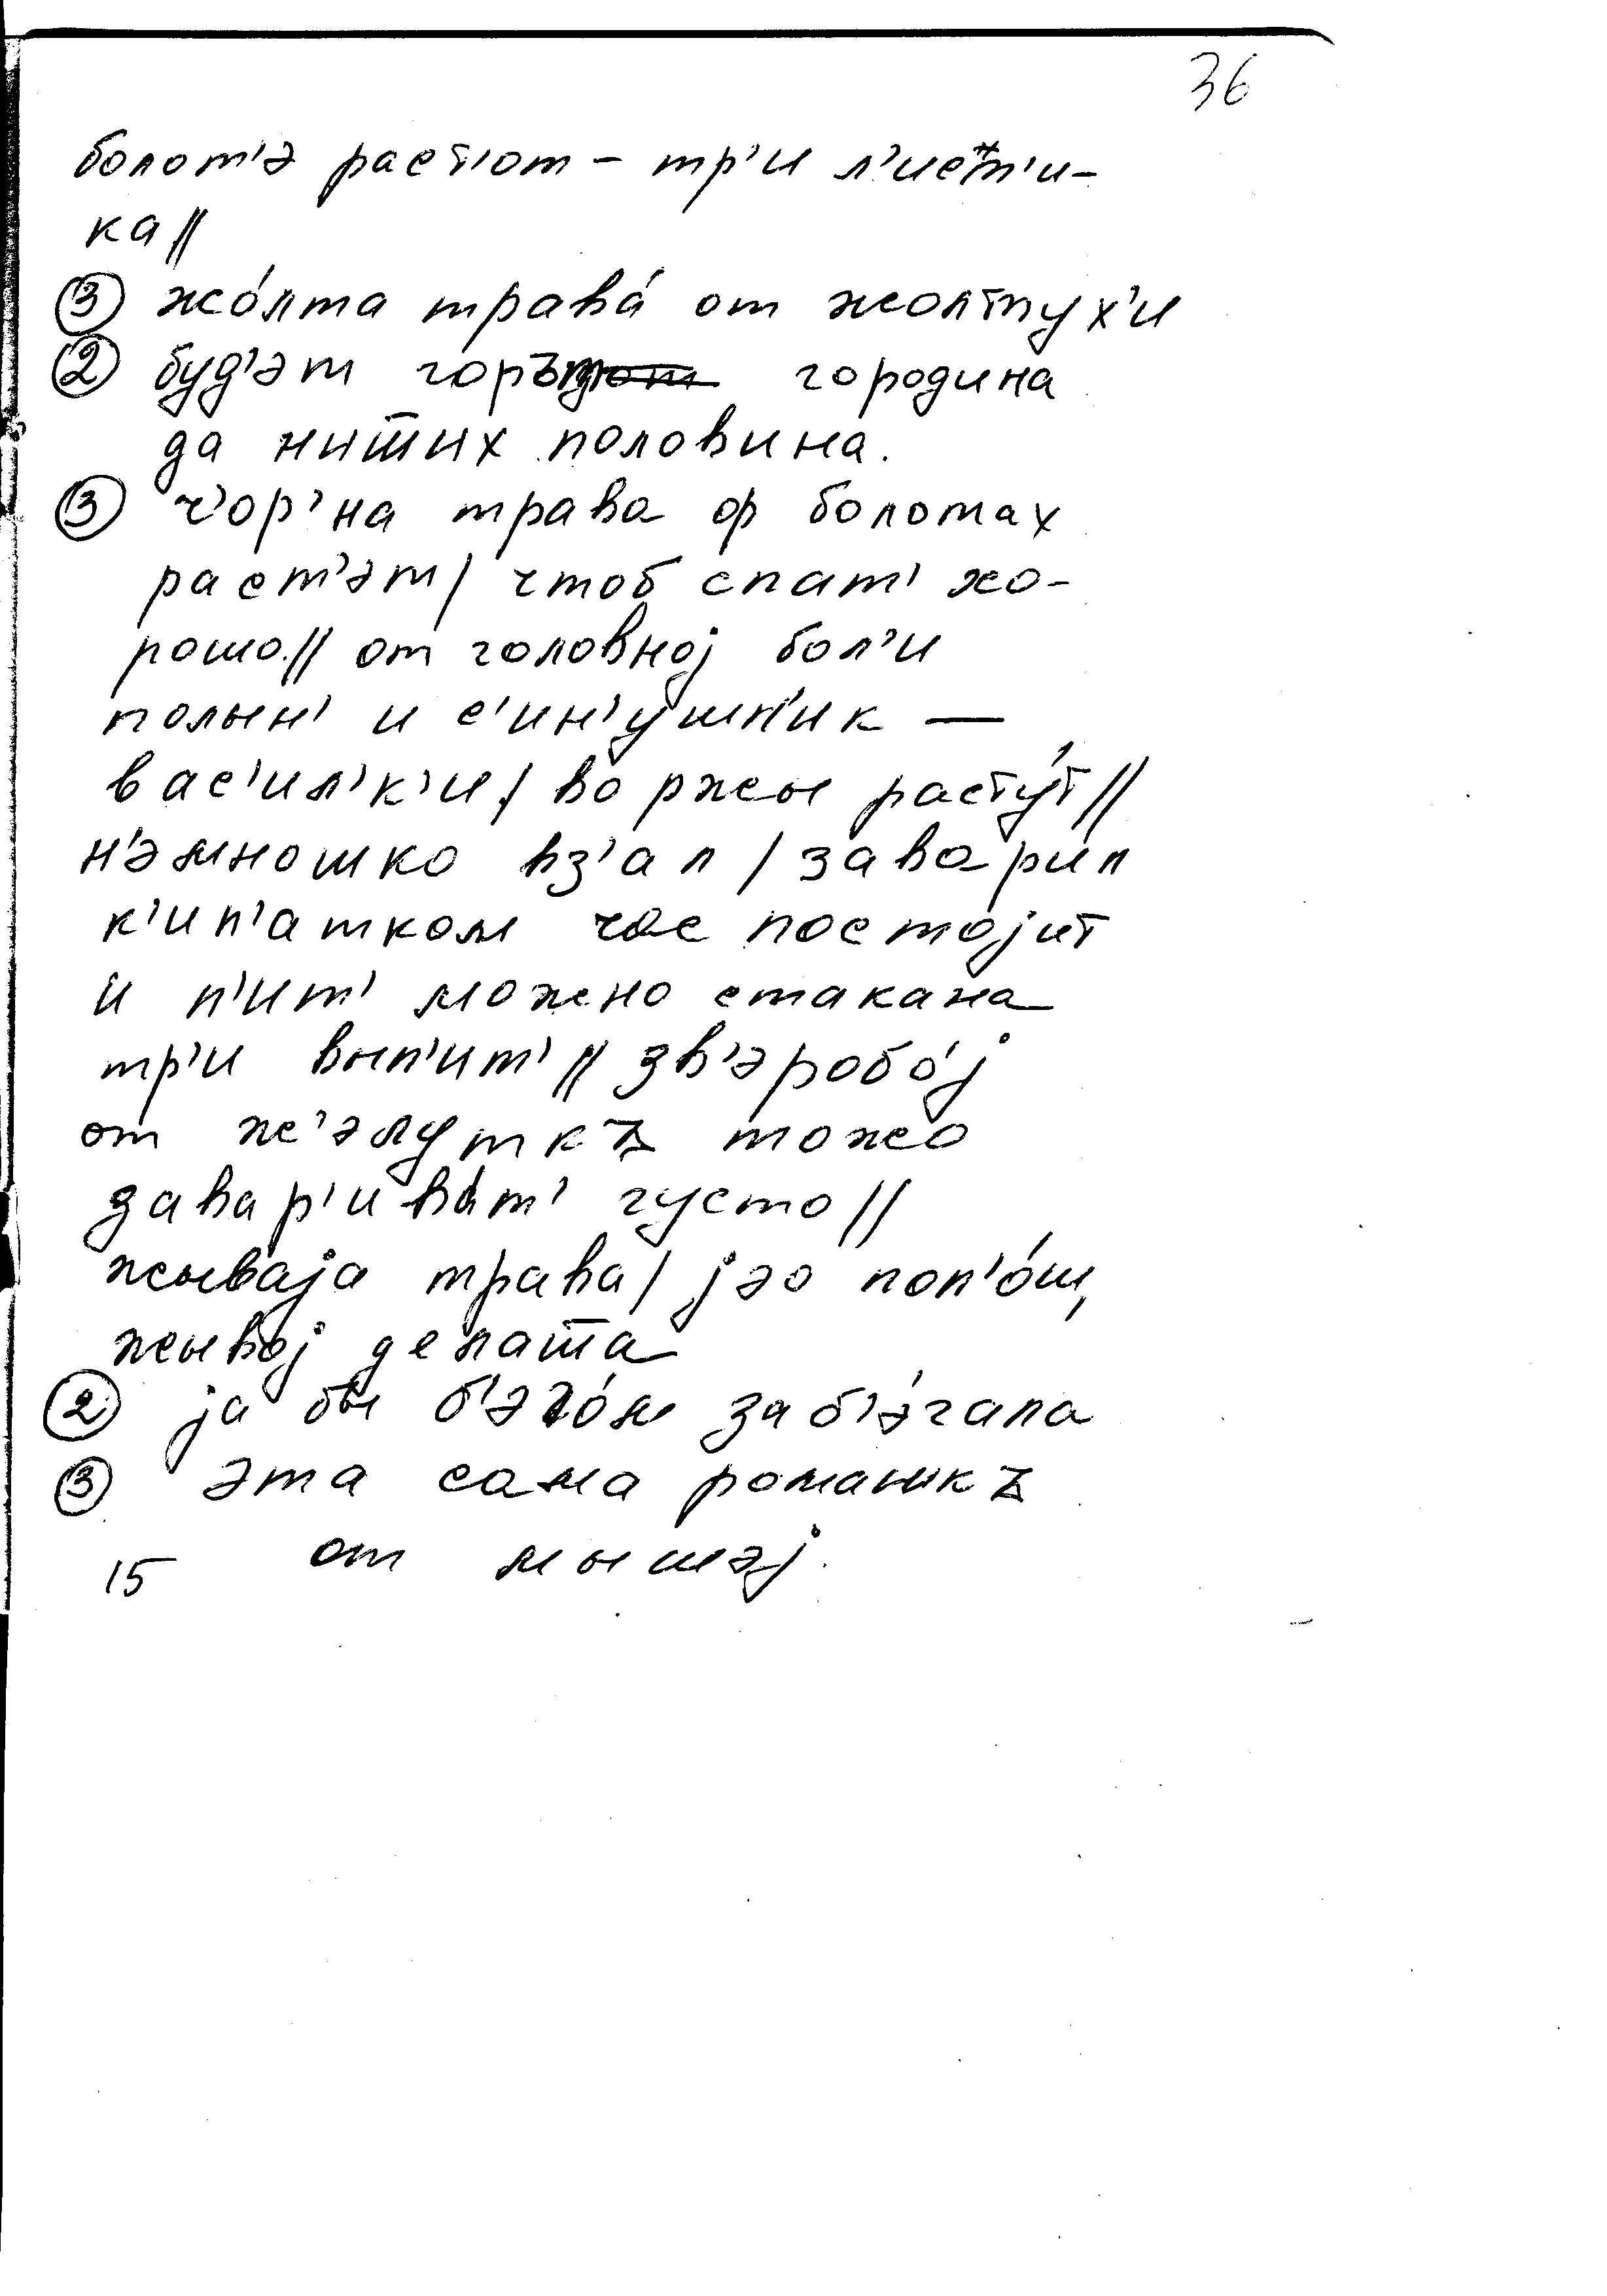 36
болот'э раст'от – тр'и л'ист'и-
ка //
③ жо́лта трава́ от жолтух'и
② буд'эт городина
да нитших половина.
③ ч'ор'на трава ф болотах
раст'эт / чтоб спат' хо-
рошо. // от головној бол'и
полын' и с'ин'ушн'ик —
вас'ил'к'и / во ржы расту́т //
н'эмношко вз'ал / заварил
к'ип'атком час постојит
и п'ит' можно стакана
тр'и вып'ит' // зв'эробо́ј
от ж'элуткъ тожо
завар'иват' густо //
жываја трава / јэо поп'о́ш,
жывој делатса
② ја бы б'эго́м заб'э́гала
③ эта сама ромашкъ
15 от мышэј.